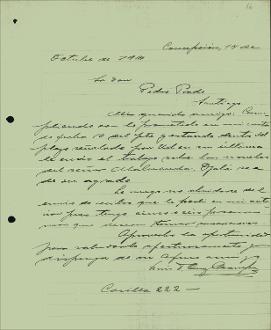 Concepción, 15 de
Octubre de 1914
Señor don
Pedro Prado
Santiago
Mi querido amigo: Cum
pliendo con lo prometido en mi carta
de fecha 10 del pte y estando dentro del
plazo señalado por Ud en su última
le envio el trabajo sobre las novelas
del señor Maluenda. Ojalá sea
de su agrado.
Le ruego no olvidarse del
envio de
que le pedí en mi ante
rior pues tengo
Aprovecho la oportunidad
para saludarlo afectuosamente y
disponga de su Afmo amigo
Luis
Casilla 222 -